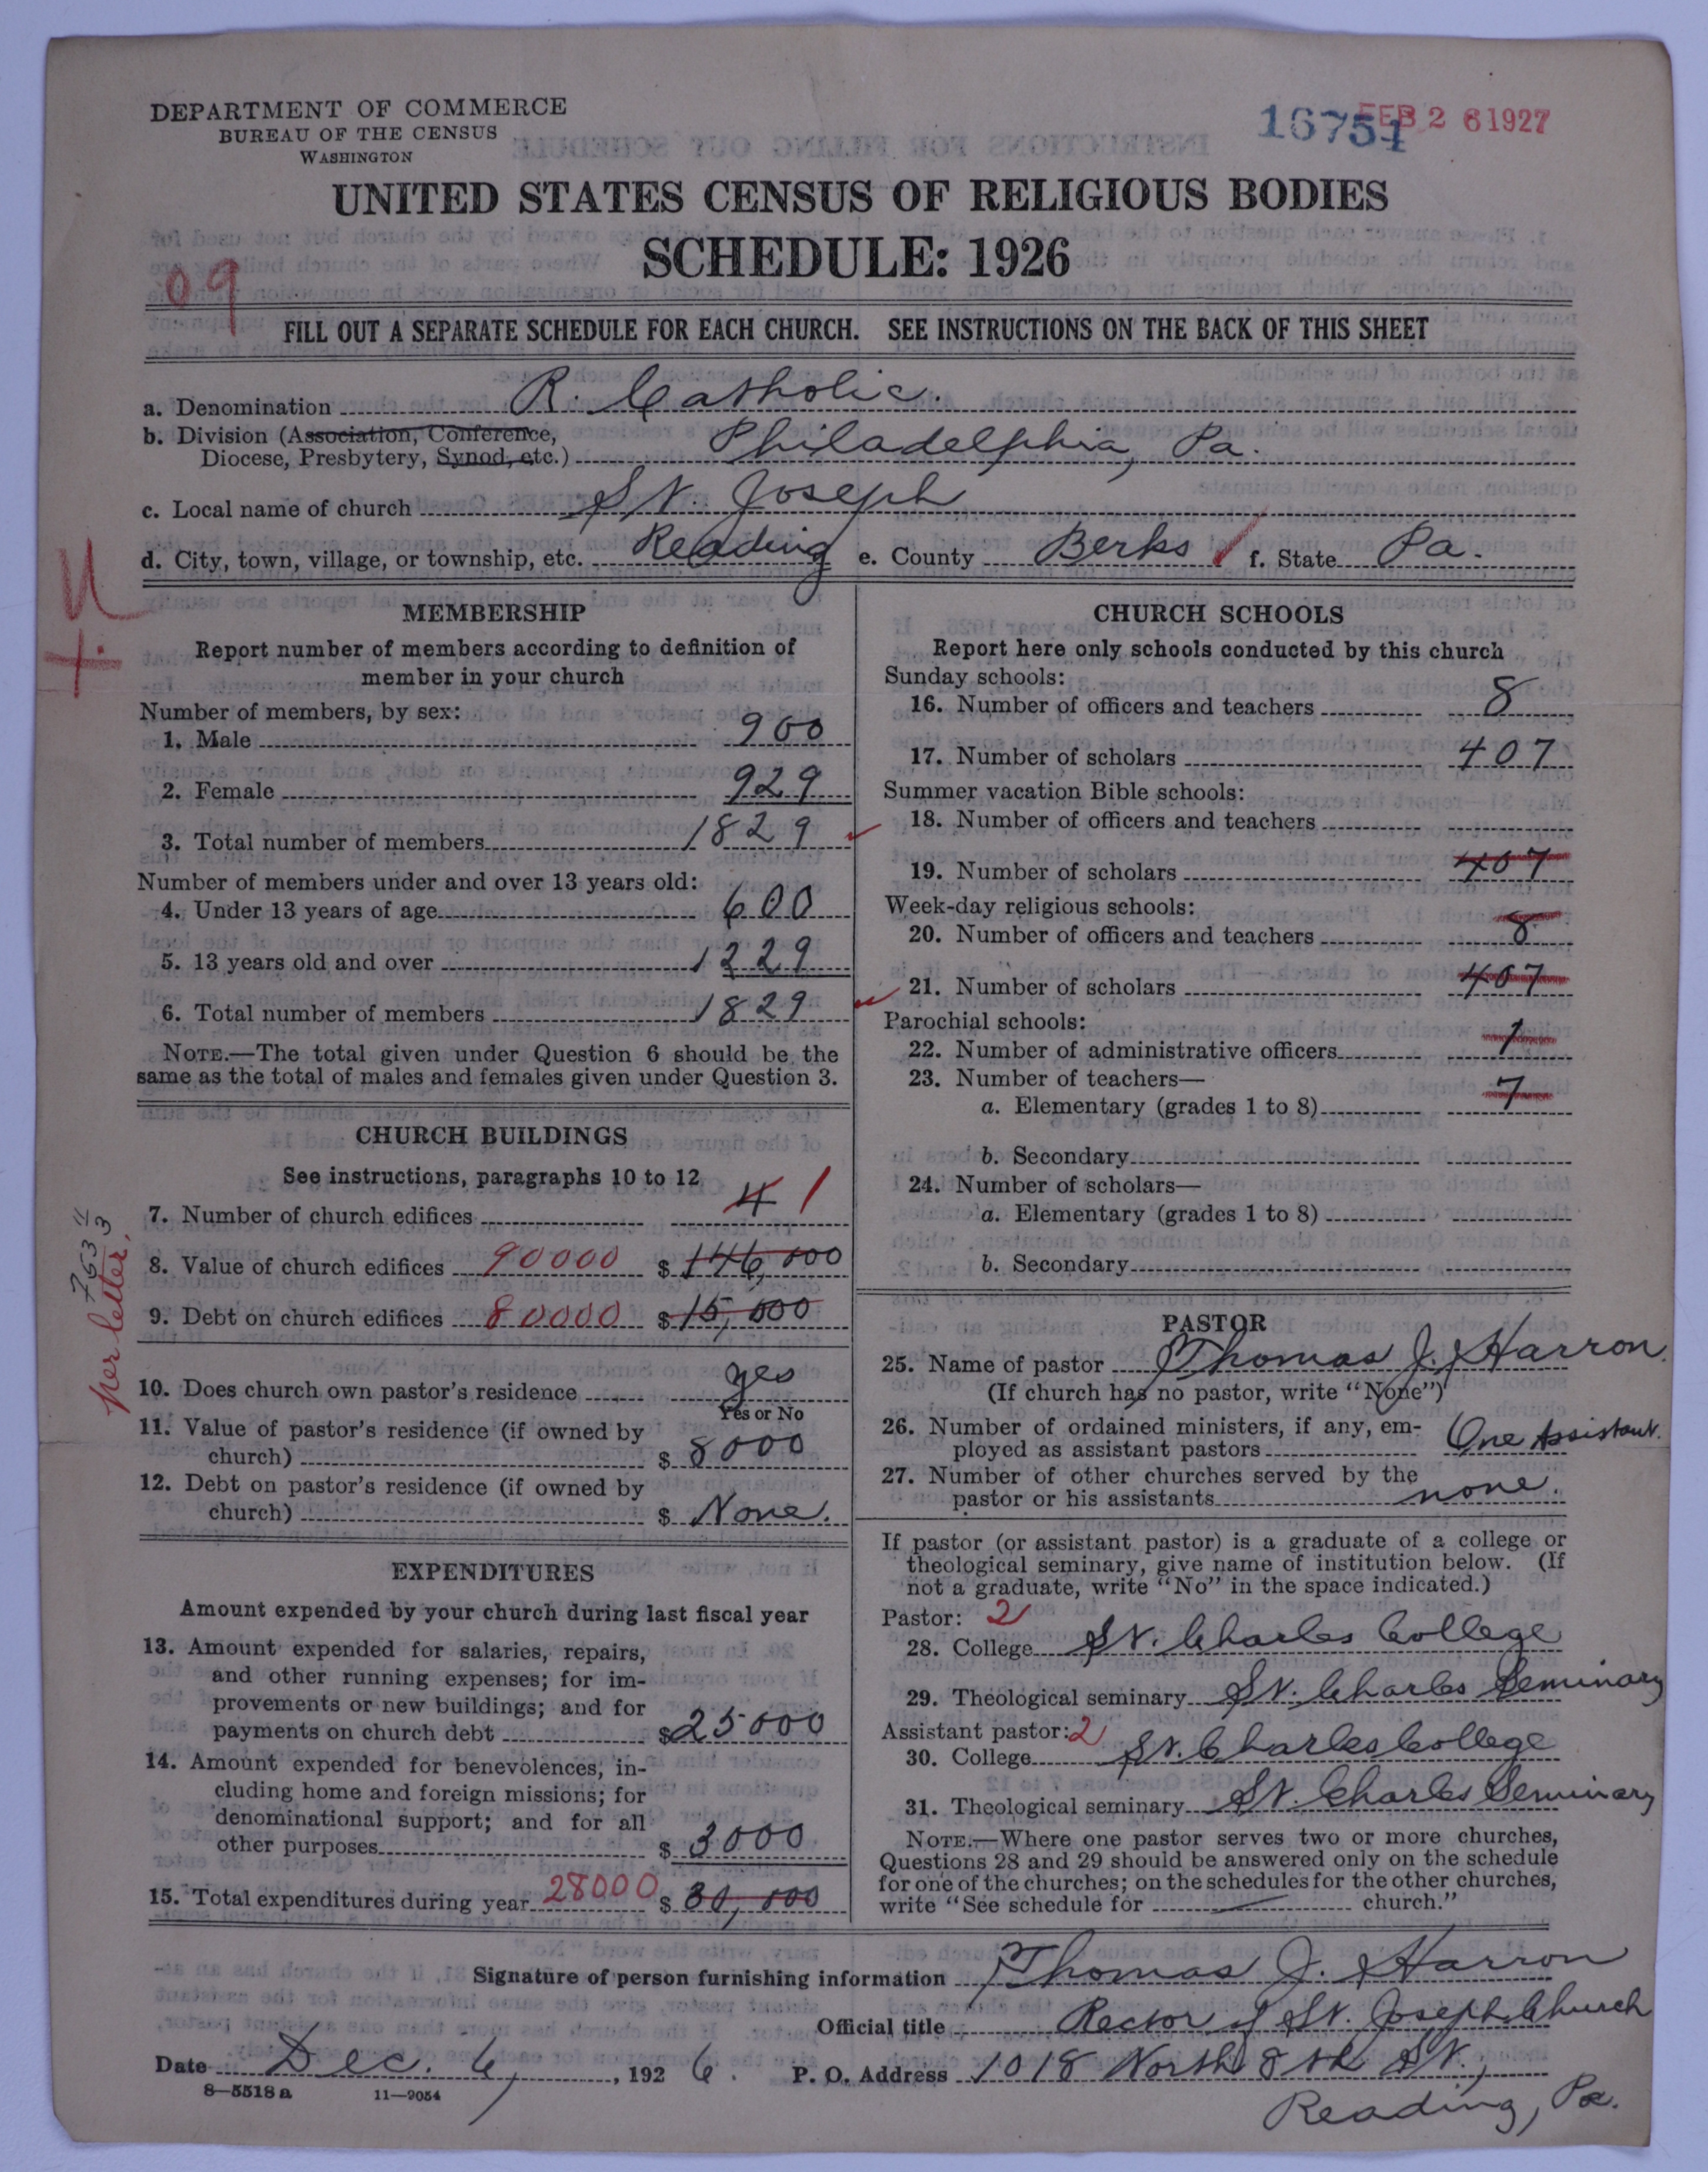 DEPARTMENT OF COMMERCE
BUREAU OF THE CENSUS
WASHINGTON
16751 FEB 2 6 1927
UNITED STATES CENSUS OF RELIGIOUS BODIES
SCHEDULE: 1926
09
FILL OUT A SEPARATE SCHEDULE FOR EACH CHURCH. SEE INSTRUCTIONS ON THE BACK OF THIS SHEET
a. Denomination R. Catholic.
b. Division (Association, Conference,
Diocese, Presbytery, Synod, etc.) Philadelphia, Pa.
c. Local name of church St. Joseph
d. City, town, village, or township, etc. Reading e. County Berks f. State Pa.
MEMBERSHIP
Report number of members according to definition of
member in your church
Number of members, by sex:
1. Male 900
2. Female 929
3. Total number of members 1829
Number of members under and over 13 years old:
4. Under 13 years of age 600
5. 13 years old and over 1229
6. Total number of members 1829
NOTE.—The total given under Question 6 should be the
same as the total of males and females given under Question 3.
CHURCH BUILDINGS
See instructions, paragraphs 10 to 12
7. Number of church edifices 4 1
8. Value of church edifices 90000 $ 146,000
9. Debt on church edifices 80000 $ 15,000
per letter.
10. Does church own pastor's residence yes
Yes or No
11. Value of pastor's residence (if owned by
church) $ 8000
12. Debt on pastor's residence (if owned by
church) $ None.
EXPENDITURES
Amount expended by your church during last fiscal year
13. Amount expended for salaries, repairs,
and other running expenses; for im-
provements or new buildings; and for
payments on church debt $ 25000
14. Amount expended for benevolences, in-
cluding home and foreign missions; for
denominational support; and for all
other purposes $ 3000
15. Total expenditures during year 28000 $ 30,000
CHURCH SCHOOLS
Report here only schools conducted by this church
Sunday schools:
16. Number of officers and teachers 8
17. Number of scholars 407
Summer vacation Bible schools:
18. Number of officers and teachers
19. Number of scholars 407
Week-day religious schools:
20. Number of officers and teachers 8
21. Number of scholars 407
Parochial schools:
22. Number of administrative officers 1
23. Number of teachers—
a. Elementary (grades 1 to 8) 7
b. Secondary
24. Number of scholars—
a. Elementary (grades 1 to 8)
b. Secondary
PASTOR
25. Name of pastor Thomas J. Harron.
(If church has no pastor, write "None")
26. Number of ordained ministers, if any, em-
ployed as assistant pastors One Assistant.
27. Number of other churches served by the
pastor or his assistants none.
If pastor (or assistant pastor) is a graduate of a college or
theological seminary, give name of institution below. (If
not a graduate, write "No" in the space indicated.)
Pastor: 2
28. College St. Charles College
29. Theological seminary St. Charles Seminary
Assistant pastor: 2
30. College St. Charles College
31. Theological seminary St. Charles Seminary
NOTE.—Where one pastor serves two or more churches,
Questions 28 and 29 should be answered only on the schedule
for one of the churches; on the schedules for the other churches,
write "See schedule for — church."
Signature of person furnishing information Thomas J. Harron
Official title Rector of St. Joseph Church
Date Dec. 6, 1926. P. O. Address 1018 North 8th St.,
Reading, Pa.
8—5518 a 11—9054